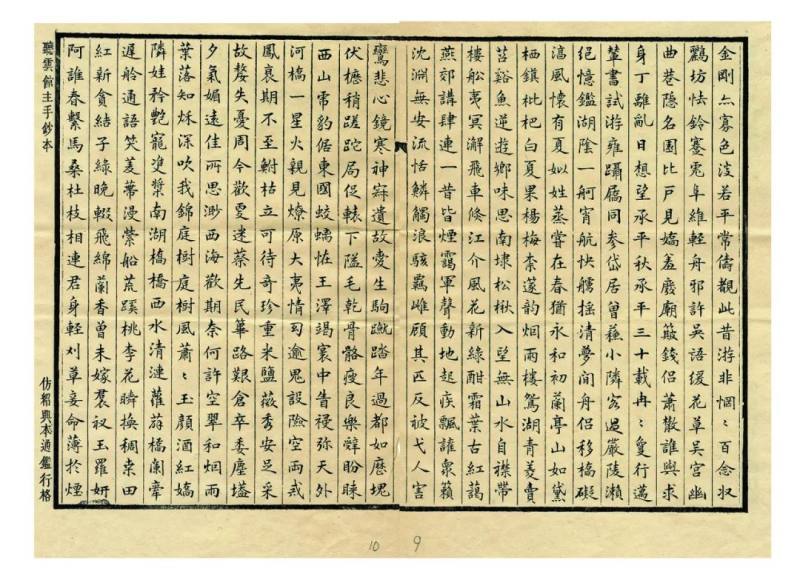 金剛亦寡色波若平常儔觀此昔游非惘〻百念収
鸝坊怯鈴塞兎阜維輕舟邪許吳語緩花草吳宮幽
曲巷隐名園比戶見嬌羞廢廟簸錢侶蕭散誰與求
身丁離亂日想望承平秋承平三十載冉〻夐行邁
輦書試游雍躡屩同参岱居曾蘇小隣客過嚴陵瀨
絕憶鑑湖陰一舸宵航快艣搖清夢間舟侶移橋礙
滈風懷有夏姒姓蒸嘗在春猶永和初蘭亭山如黛
栖鎮枇杷白夏果楊梅柰蓬韵烟雨樓鴛湖青菱賣
苕谿魚逆遊鄉味思南埭松楸入望無山水自襟帶
樓船夷冥澥飛車倏江介風花新綠酣霜葉古紅藹
燕郊講肆連一昔皆煙靄軍聲動地起疾飄誰衆籟
沈淵無安流恬鱗觸浪駭羈雌顧其匹反被弋人害
鸞悲心鏡寒神寐遺故愛生駒蹴踏年過都如歷塊
伏櫪稍蹉跎局促轅下隘毛乾骨骼瘦良樂辭盼睞
西山霧豹倨東國蛟蠕恠王澤竭寰中告祲弥天外
河橋一星火親見燎原大夷情司逾鬼設險空兩戒
鳳衰期不至鮒枯立可待奇珍重米鹽薇秀安足采
故嫠失憂周今歡夐迷蔡先民蓽路艱倉卒委塵壒
夕氣媚遠佳所思渺西海歡期奈何許空翠和烟雨
葉落知秌深吹我錦庭樹庭樹風蕭〻玉顏酒紅嬌
隣娃矜艷寵夋槳南湖橋橋西水清漣蘿葫橋闌牽
遲舲通語笑荾蔕漫縈船荒蹊桃李花瞬換稠桒田
紅新貪結子綠晚輟飛綿蘭香曾未嫁羣衩玉羅妍
阿誰春繫馬桑杜枝相連君身輕刈草妾命薄於煙
聽雲館主手鈔本
仿紹興本通鑑行格
10
9